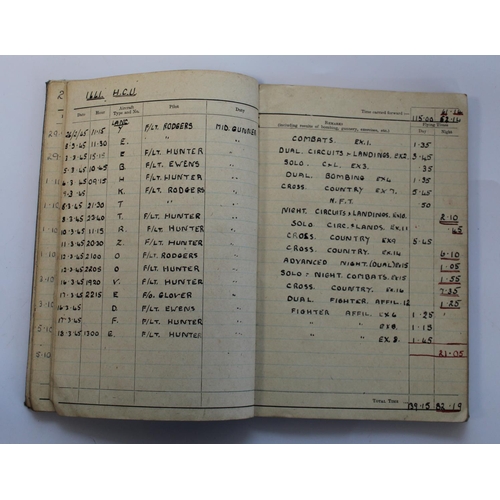 1661. H.C.U.
Date Hour Aircraft Type and No. Pilot Duty
Time carried forward:—
Remarks
(including results of bombing, gunnery, exercises, etc.)
Flying Times
Day Night
115.00 62.14
LANC
26/2/45 11.15 Y F/LT. RODGERS MID. GUNNER COMBATS. EX.1. 1.35
3.3.45 11.30 E. " " DUAL. CIRCUITS & LANDINGS. EX2. 3.45
3.3.45 15.15 E F/LT. HUNTER " SOLO. C&L. EX3. .35
5.3.45 10.45 B F/LT. EWENS " DUAL. BOMBING EX6 1.35
6.3.45 09.15 H F/LT. HUNTER " CROSS. COUNTRY EX 7. 5.45
K. F/LT. RODGERS " N.F.T. 50
21.30 T " " NIGHT. CIRCUITS & LANDINGS. EX10. 2.10
.3.45 T. F/LT. HUNTER " SOLO CIRC & LANDS. EX.11 .45
.3.45 11.15 R. F/LT. HUNTER " CROSS. COUNTRY EX9 5.45
11.3.45 Z. F/LT. HUNTER " CROSS. COUNTRY. EX.14 6.10
12.3.45 2100 O F/LT. RODGERS " ADVANCED NIGHT. (DUAL) EX15 1.05
12.3.45 O F/LT. HUNTER " SOLO. NIGHT. COMBATS. EX.15 1.55
16.3.45 1920 V. F/LT. HUNTER " CROSS. COUNTRY. EX.14 7.35
17.3.45 2215 E F/O. GLOVER " DUAL FIGHTER AFFIL. 12 1.25
16.3.45 D. F/LT. EWENS " FIGHTER AFFIL. EX 6 1.25
17.3.45 F. F/LT. HUNTER " " " EX8. 1.15
18.3.45 1300 E. F/LT. HUNTER " " " EX 8. 1.45
21.05
Total Time
139.15 82.19